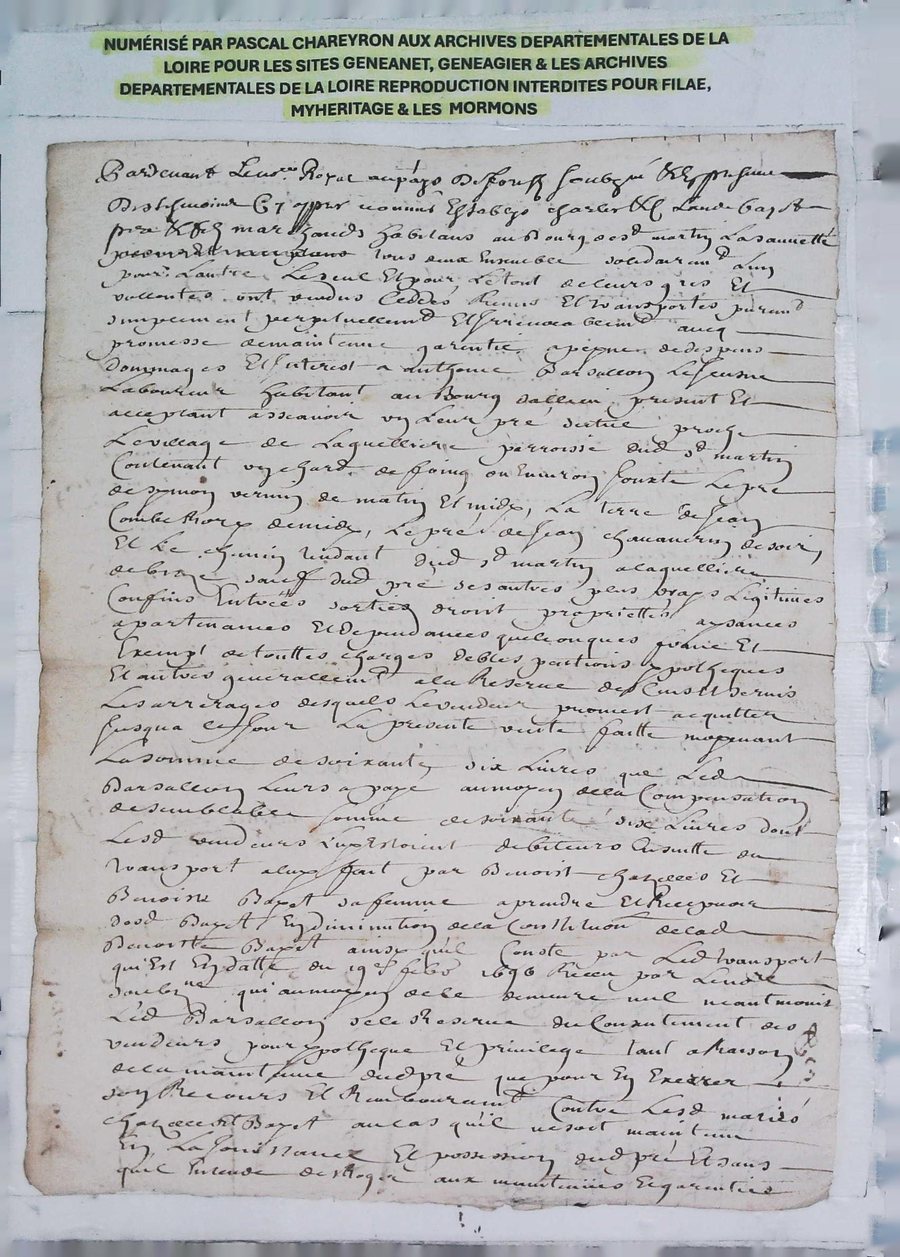 NUMÉRISÉ PAR PASCAL CHAREYRON AUX ARCHIVES DEPARTEMENTALES DE LA
LOIRE POUR LES SITES GENEANET, GENEAGIER & LES ARCHIVES
DEPARTEMENTALES DE LA LOIRE REPRODUCTION INTERDITES POUR FILAE,
MYHERITAGE & LES MORMONS
Pardevant Le no.re Royal au pays De forest soubzné &
nommés Establys Charles & Claude Bayot
pere & fils marchands habitans au Bourg de st martin La sauuetté
tous deux Ensemble solidairemt Lun
pour Lautre Le seul Et pour Le tout de leurs gres Et
vollontes ont vendus ceddés Remis Et transportés puremt
simplement perpetuellemt Et Irreuocablemt auec
promesse de maintenue garentie a peyne de despens
dommages Et Interest a anthoine Barsallon Le Jeune
Laboureur habitant au Bourg dallieu present Et
acceptant asscauoir un Leur pré scitué proche
Le village de Laquelliere parroisse dud st martin
Contenant de foing ou Enuiron Jouxte Le pré
de symon vernin de matin Et midy, La terre de Jean
Combe de midy, Le pré de Jean de soir,
Et Le chemin tendant dud st martin a laquelliere
de bize sauf dud pré ses autres plus vrays Legitimes
Confins Entrées sorties droits propriettes aysances
apartenances Et dependances quelconques franc Et
Exempt de touttes charges debtes pactions ypotheques
Et autres generallemt a la Reserve des Cens Et servis
Les arrerages desquels Le vendeur promest acquitter
Jusqua ce Jour La presente vente faitte moyenant
La somme de soixante six Liures que Led
Barsallon Leurs a payé au moyen de la Compensation
de semblable somme de soixante six Liures dont
Lesd vendeurs Luy Estoient debiteurs Ensuitte du
transport a luy fait par Benoist Et
Benoiste Bayot sa femme a prendre Et Recepuoir
desd Bayot En diminution de la Constitution de lad
Benoitte Bayot ainsy quil Conste par Led transport
qui Est En datte du 19e feb 1696 Receu par Le no.re
soubzne qui au moyen de ce demeure nul neantmoins
Led Barsallon se Reserve du Consentement des
vendeurs pour ypotheque Et privilege tant a Raison
de la maintenue dud pré que pour En Exercer
son Recours Et Remboursemt Contre Lesd mariés
Et Bayot au cas quil ne soit maintenu
En La Jouissance Et possession dud pré Et sans
quil Entende desroger aux maintenues Et garenties